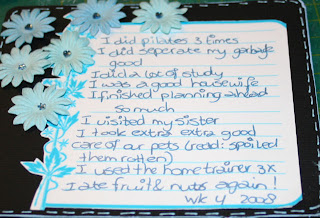 I did pilates 3 times
I did seperate my garbage
good
I did a lot of study
I was a good housewife
I finished planning ahead
so much
I visited my sister
I took extra extra good
care of our pets (read: spoiled
them rotten)
I used the home trainer 3x
I ate fruit & nuts again!
Wk 4 2008